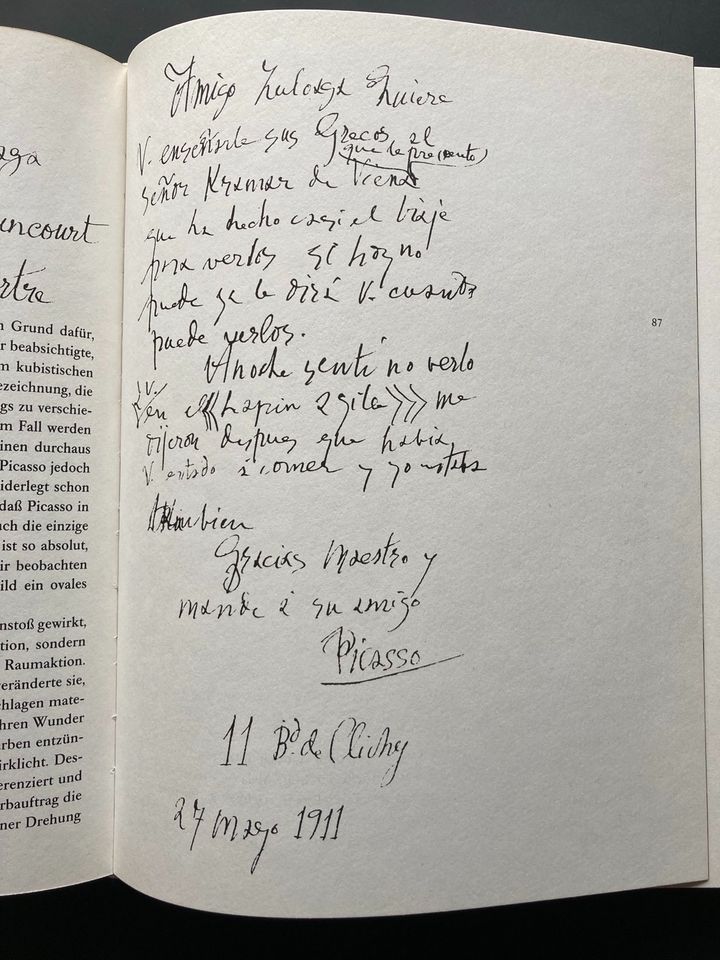 aga
ncourt
rtre
n Grund dafür,
r beabsichtigte,
m kubistischen
ezeichnung, die
gs zu verschie-
m Fall werden
inen durchaus
Picasso jedoch
iderlegt schon
daß Picasso in
uch die einzige
ist so absolut,
ir beobachten
ild ein ovales
nstoß gewirkt,
tion, sondern
Raumaktion.
veränderte sie,
chlagen mate-
hren Wunder
arben entzün-
irklicht. Des-
erenziert und
rbauftrag die
ner Drehung
Amigo Zuloaga Quiere
V. enseñarle sus Grecos al
que le presento
señor Kramar de Viena
que ha hecho casi el biaje
para verlos si hoy no
puede se le dirá V. cuando
puede verlos.
Anoche senti no verlo
V.
en el «lapin agile» me
dijeron despues que habia
V. estado á comer y yo estaba
tambien
Gracias Maestro y
mande á su amigo
Picasso
11 Bd. de Clichy
27 Mayo 1911
87